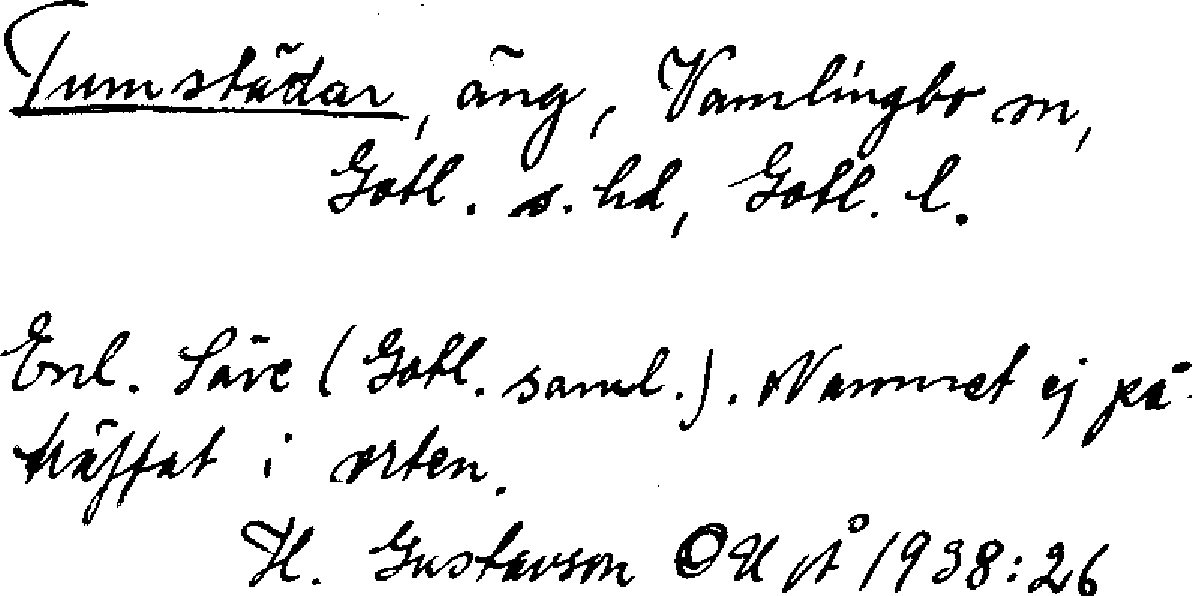 Tumstädar, äng, Vamlingbo sn,
Gotl. s. hd, Gotl. l.
Enl. Säve (Gotl. saml.). Namnet ej på-
träffat i orten.
H. Gustavson OUÅ 1938:26